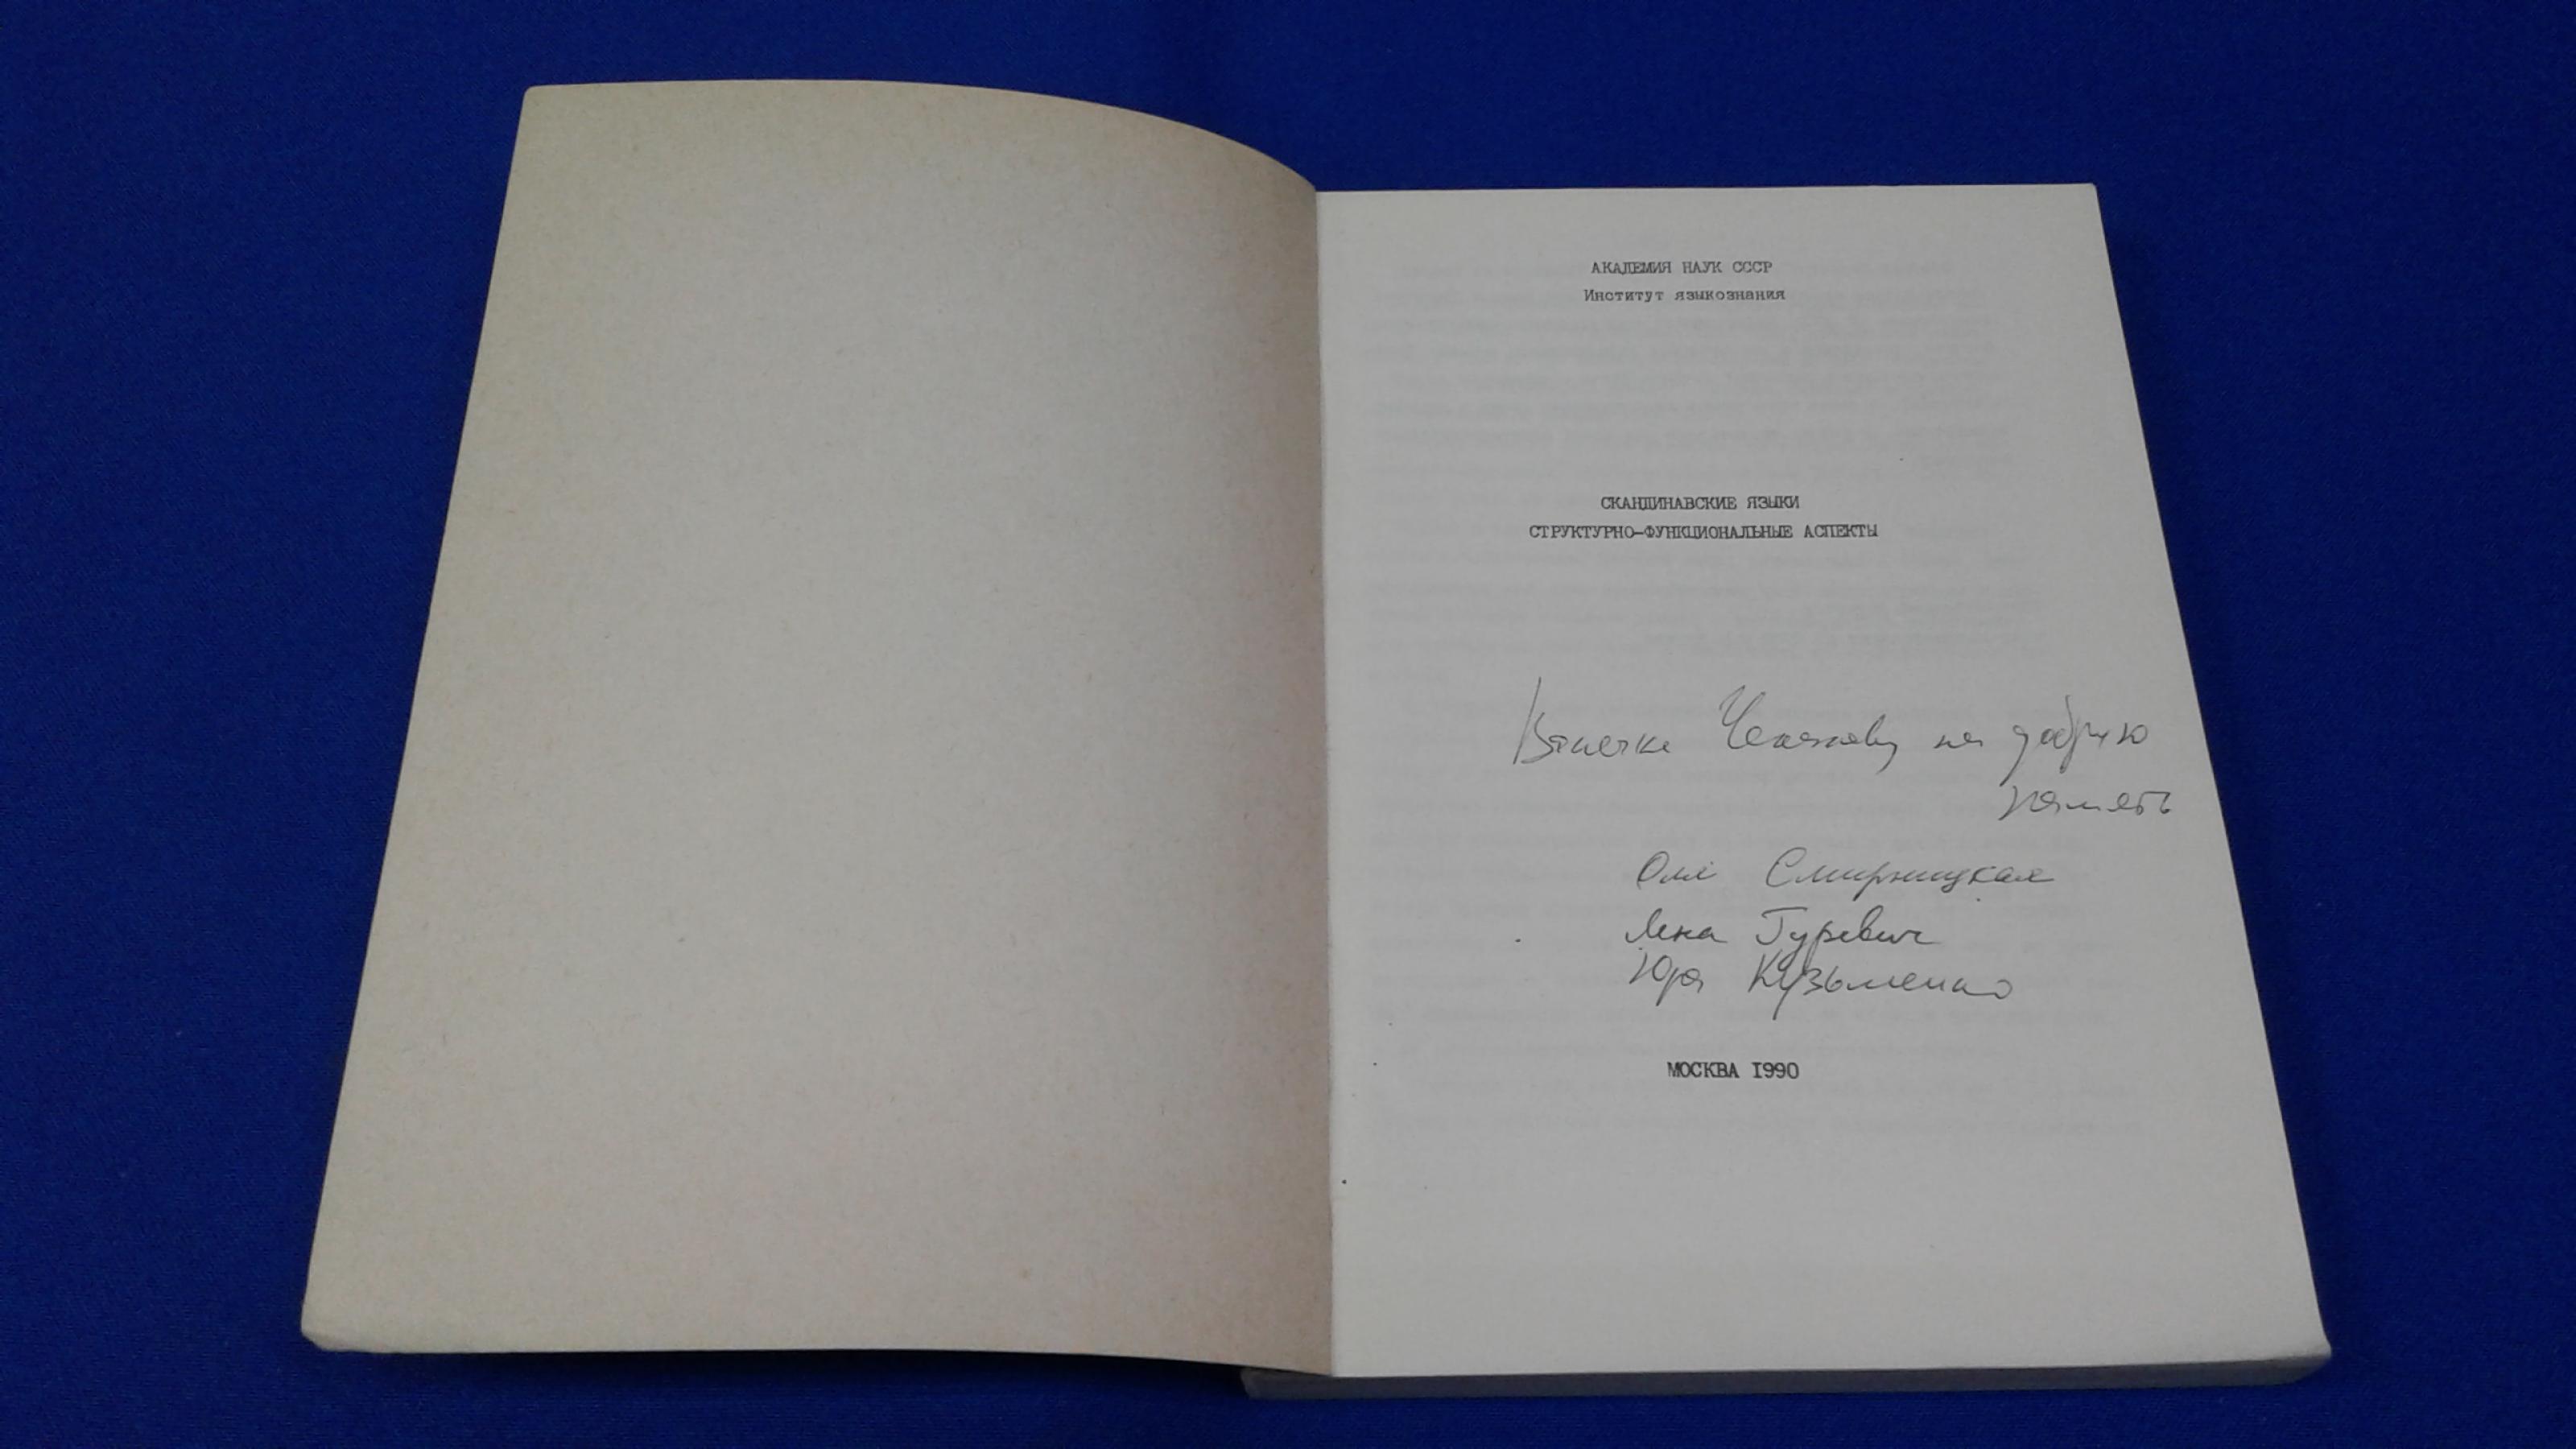 АКАДЕМИЯ НАУК СССР
Институт языкознания
СКАНДИНАВСКИЕ ЯЗЫКИ
СТРУКТУРНО-ФУНКЦИОНАЛЬНЫЕ АСПЕКТЫ
на добрую
память
Оля Смирницкая
Лена Гуревич
Юра Кузьменко
МОСКВА 1990